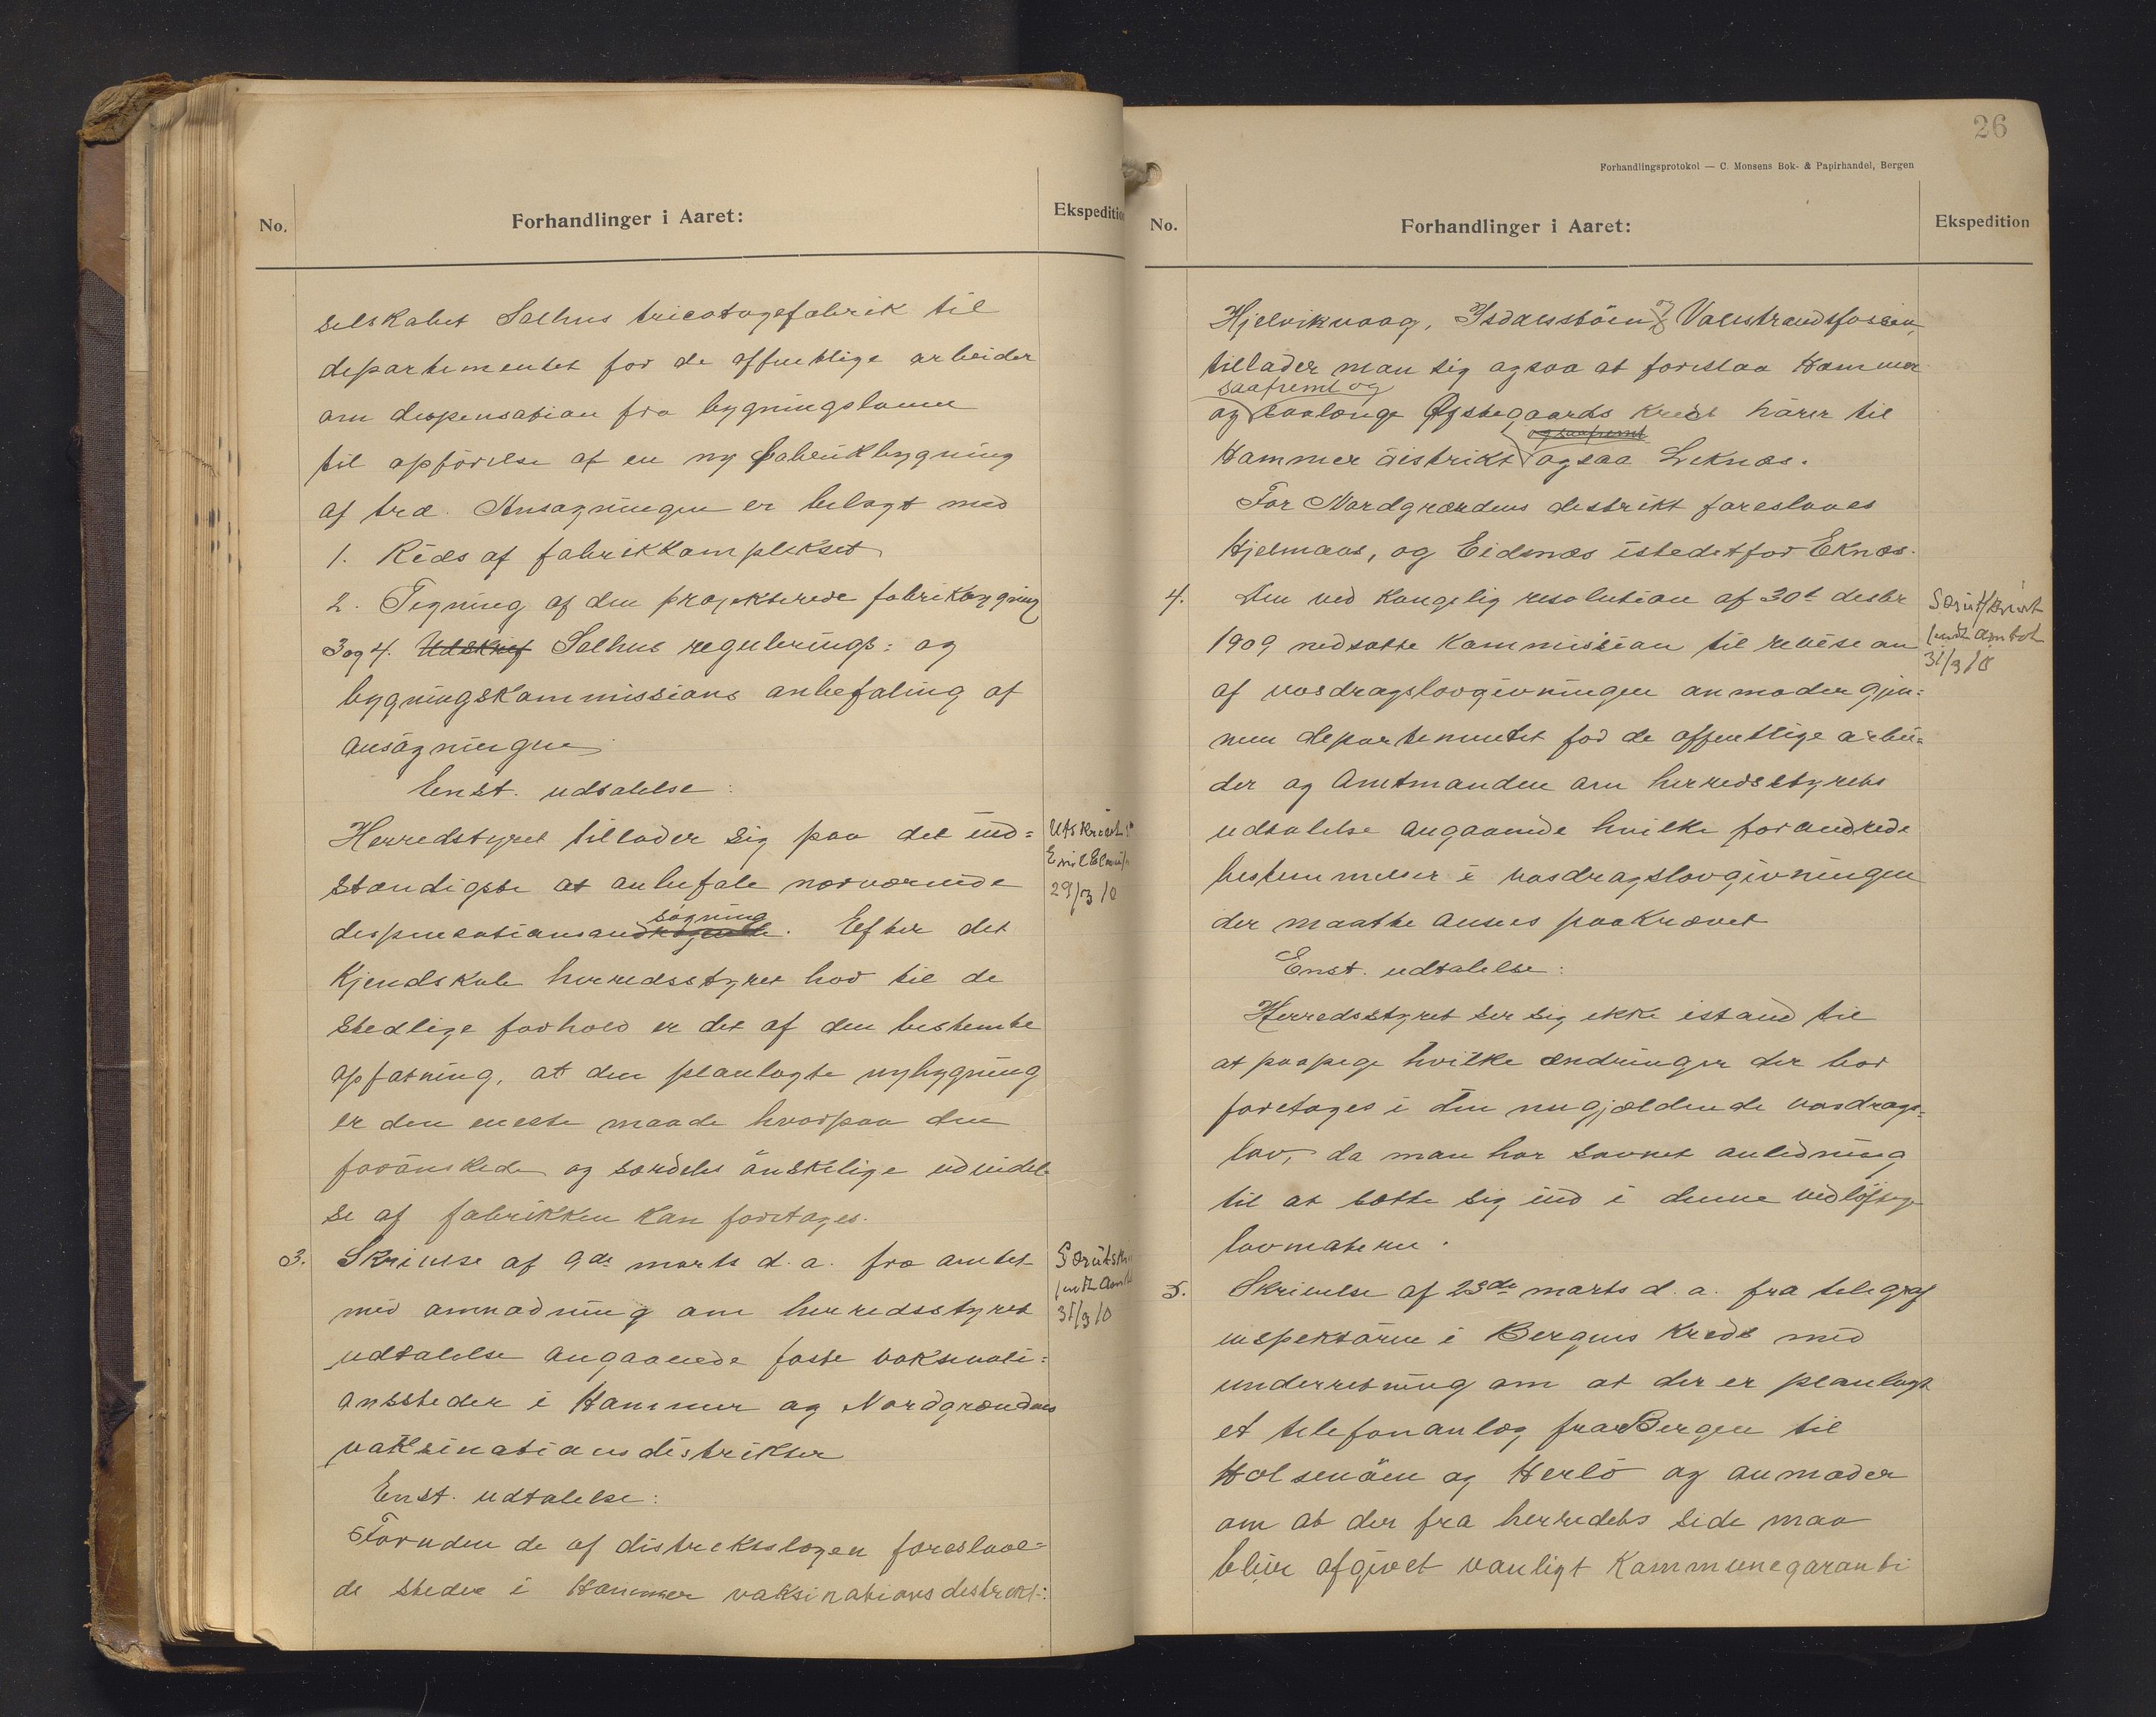 No.
Forhandlinger i Aaret:
Ekspedition
selskabet Salhus tricotagefabrik til
departementet for de offentlige arbeider
om dispensation fra bygningsloven
til opförelse af en ny fabrikbygning
af træ. Ansøgningen er belagt med
1. Rids af fabrikkomplekset
2. Tegning af den projekterede fabrikbygning
3 og 4. Udskrif Salhus regulerings= og
bygningskommissions anbefaling af
ansögningen
Enst. udtalelse:
Herredstyret tillader sig paa det ind=
stændigste at anbefale nærværende
søgning
dispensationsan. Efter det
Kjendskab herredsstyret har til de
stedlige forhold er det af den bestemte
opfatning, at den planlagte nybygning
er den eneste maade hvorpaa den
forönskede og særdeles önskelige udvidel
se af fabrikken kan foretages.
Utskrivt
29/3 10
3. Skrivelse af 9de marts d. a. fra amtet
med anmodning om herredsstyret
udtalelse angaaende faste vaksinati=
onssteder i Hammer og Nordgrændens
vaksinationsdistrikter
Enst. udtalelse:
Foruden de af distriktslægen foreslaae=
de steder i Hammer vaksinationsdistrikt:
Særutskr
sendt Amt
31/3 10
26
Forhandlingsprotokol — C. Monsens Bok- & Papirhandel, Bergen
No.
Forhandlinger i Aaret:
Ekspedition
Hjelvikvaag, Isdalstöen og Valestrandsfossen,
tillader man sig ogsaa at foreslaa Hammer
saafremt og
og saalænge Øgstegaards kreds hører til
og saafremt
Hammer distrikt ogsaa Leknæs.
For Nordgrændens distrikt foreslaaes
Hjelmaas, og Eidsnæs istedetfor Eknæs.
4. Den ved Kongelig resolution af 30t desbr
1909 nedsatte Kommission til revision
af vasdragslovgivningen anmoder gjen=
nem departementet for de offentlige arbei=
der og Amtmanden om herredsstyrets
udtalelse angaaende hvilke forandrede
bestemmelser i vasdragslovgivningen
der maatte ansees paakrævet
Enst. udtalelse:
Herredsstyret ser sig ikke istand til
at paapege hvilke ændringer der bör
foretages i den nugjældende vasdrags=
lov, da man har savnet anledning
til at sætte sig ind i denne vidlöftige
lovmaterie.
Særutskrivt
sendt Amtet
31/3 10
5. Skrivelse af 23de marts d. a. fra telegraf
inspektören i Bergens Kreds med
underretning om at der er planlagt
et telefonanlæg fra Bergen til
Holsenöen og Herlö og anmoder
om at der fra herredets side maa
blive afgivet vanligt Kommunegaranti